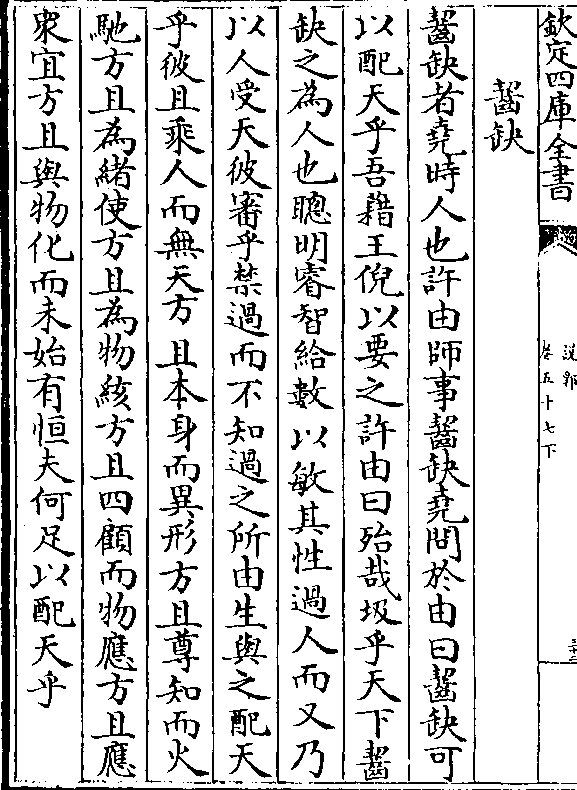 欽定四庫全書
說郛
卷五十七下
齧缺
齧缺者堯時人也許由師事齧缺堯問於由曰齧缺可
以配天乎吾藉王倪以要之許由曰殆哉圾乎天下齧
缺之為人也聰明睿智給數以敏其性過人而又乃
以人受天彼審乎禁過而不知過之所由生與之配天
乎彼且乘人而無天方且本身而異形方且尊知而火
馳方且為緒使方且為物絯方且四顧而物應方且應
衆宜方且與物化而未始有恒夫何足以配天乎